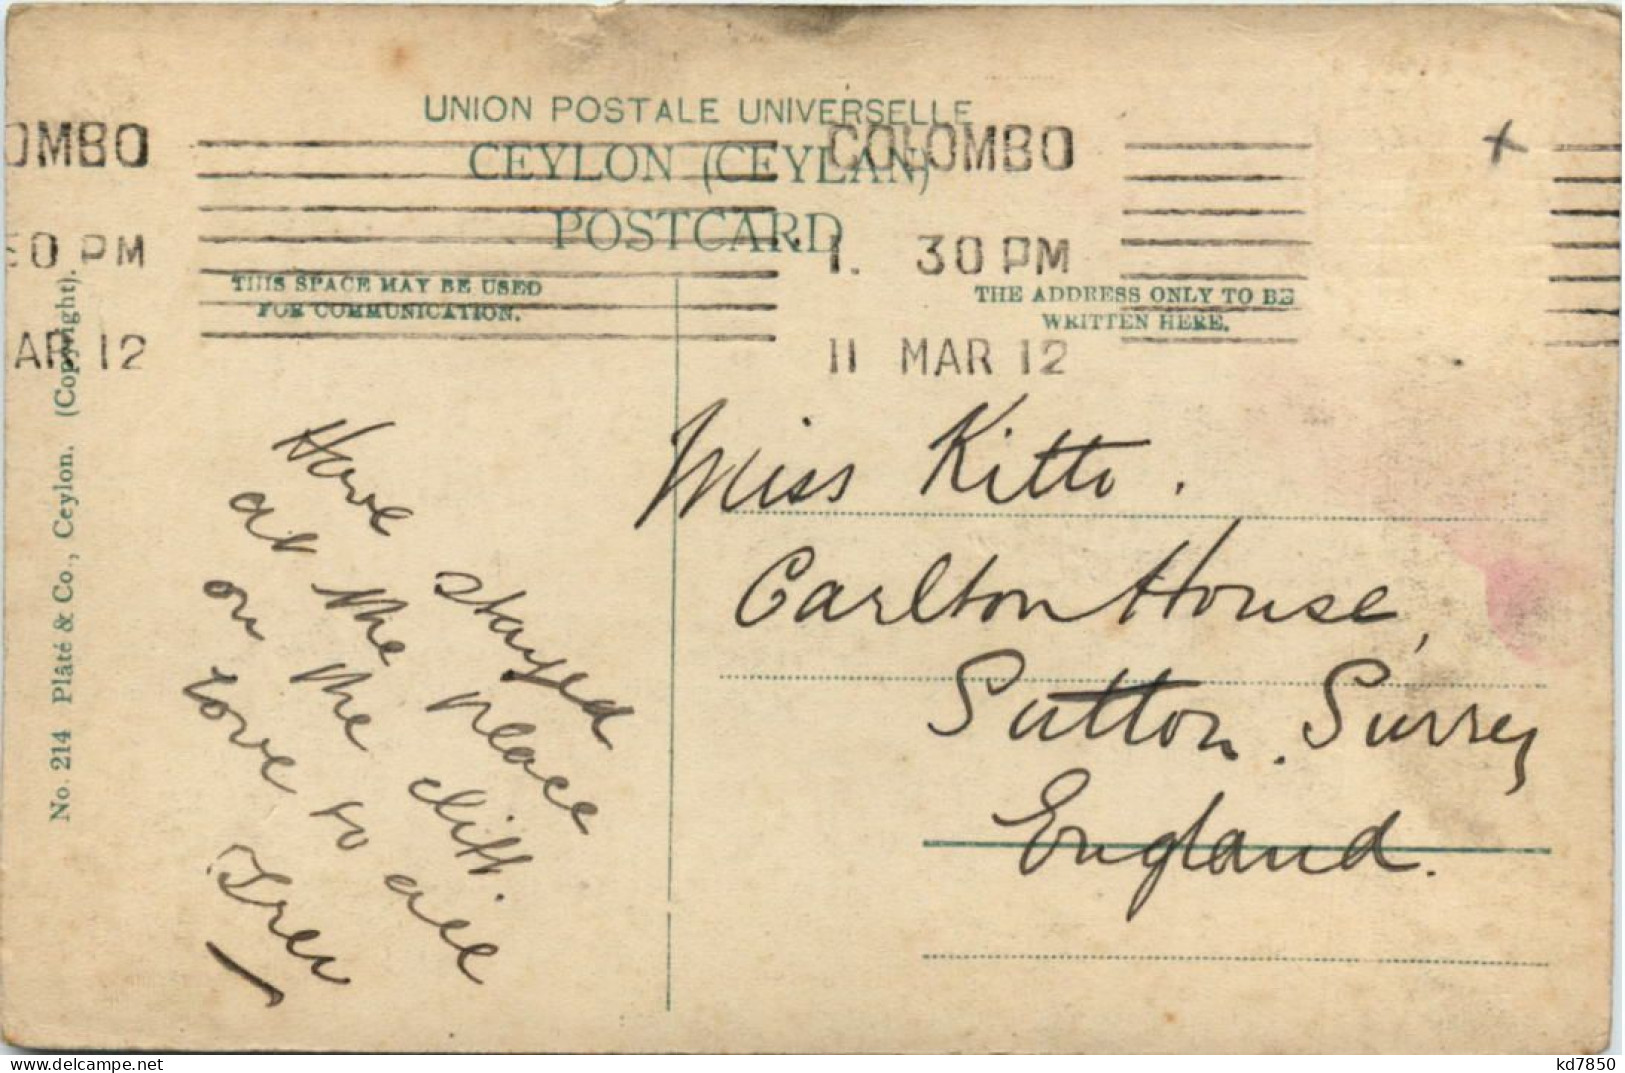 UNION POSTALE UNIVERSELLE
CEYLON (CEYLAN)
POSTCARD
OMBO
COLOMBO
30 PM
1. 30 PM
AR 12
11 MAR 12
THIS SPACE MAY BE USED
FOR COMMUNICATION.
THE ADDRESS ONLY TO BE
WRITTEN HERE.
No. 214 Plâté & Co., Ceylon. (Copyright).
Have stayed
at the place
on the cliff.
Love to all
Trev
Miss Kitto.
Carlton House,
Sutton. Surrey
England.
kd7850